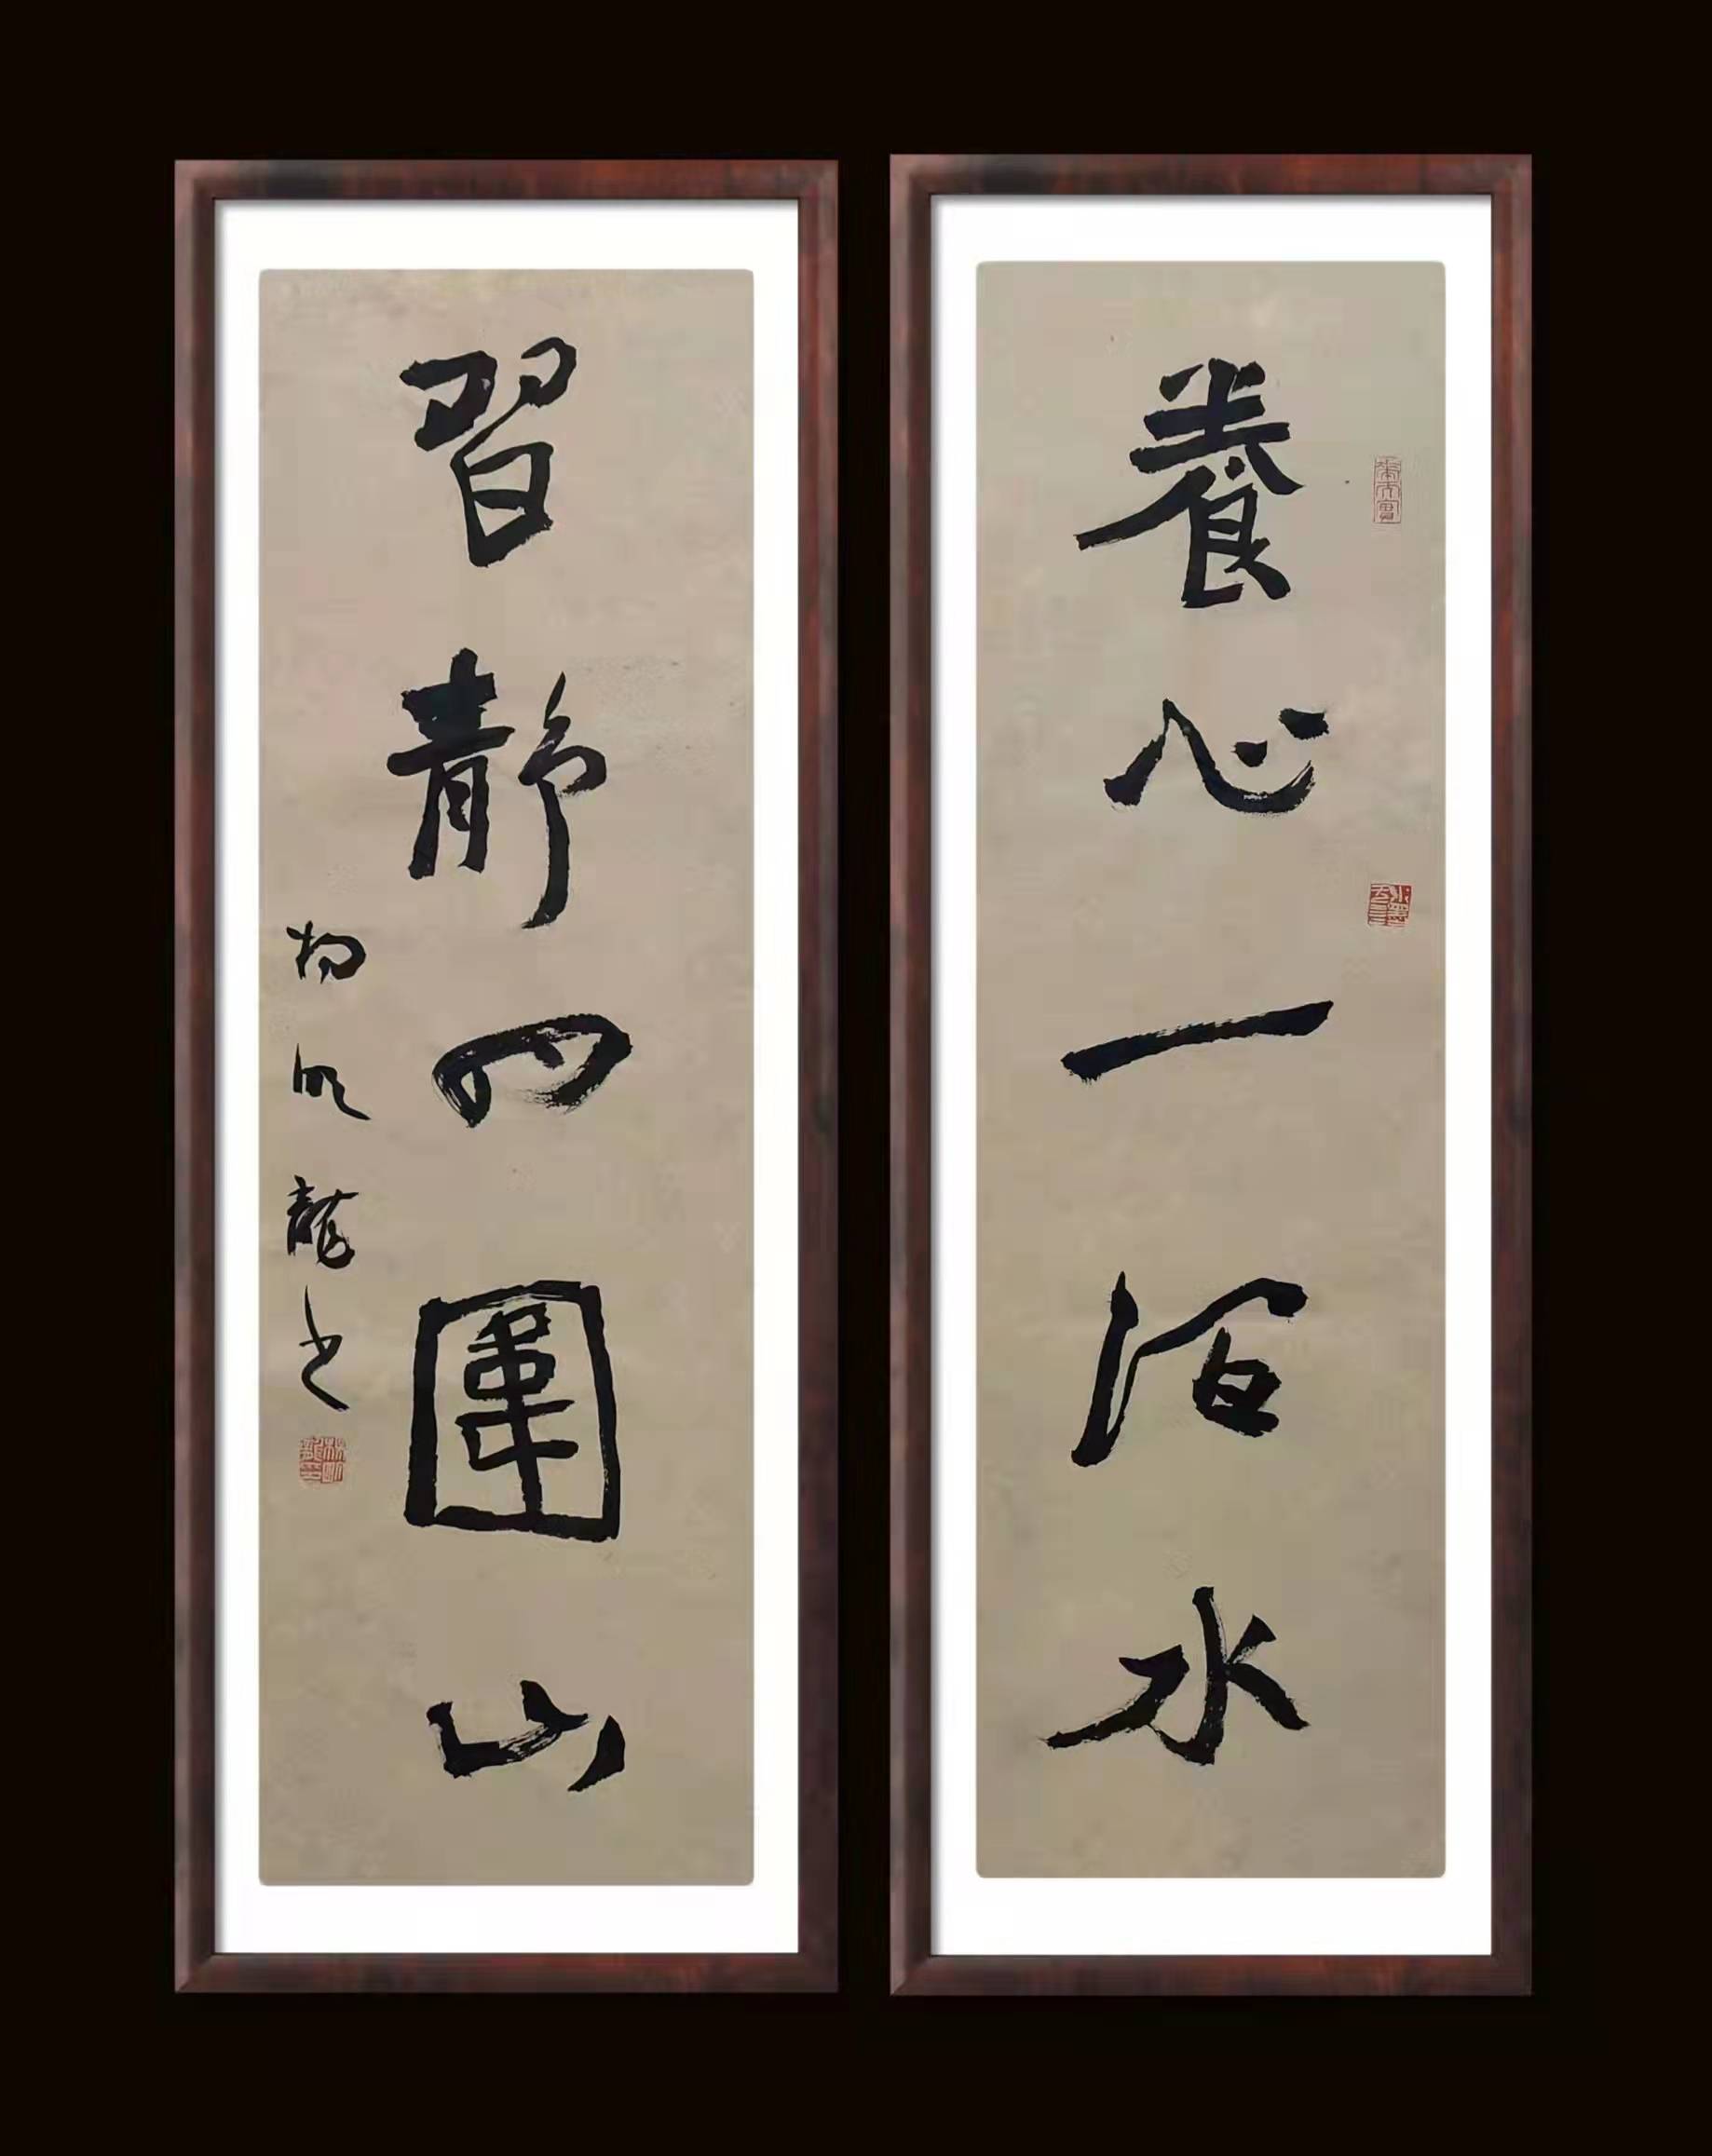 養心一水
習靜四圍山
明龍書